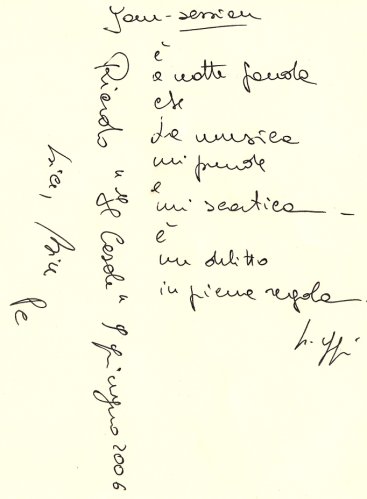 Jam-session
è
a notte fonda
che
la musica
mi prende
e
mi scartica
è
un delitto
in piena regola
Ricordo "Il Casale" 9 giugno 2006